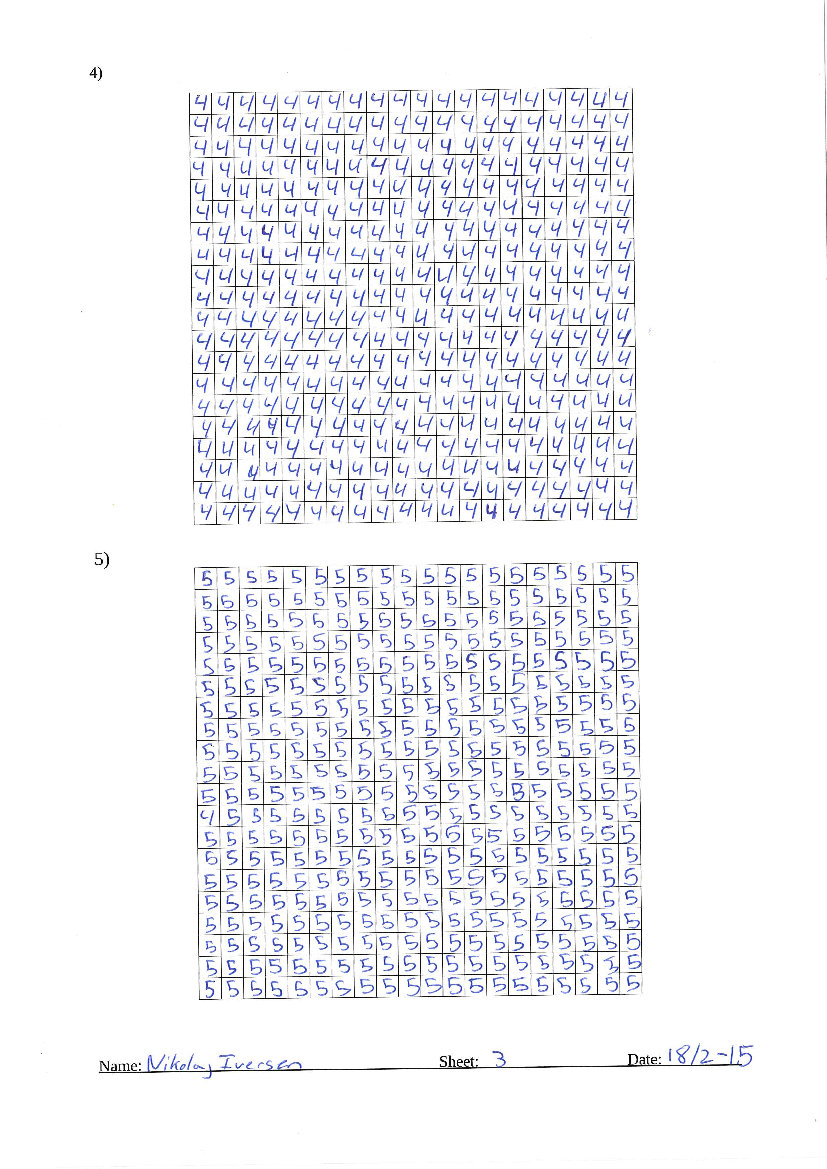 4)
4 4 4 4 4 4 4 4 4 4 4 4 4 4 4 4 4 4 4 4
4 4 4 4 4 4 4 4 4 4 4 4 4 4 4 4 4 4 4 4
4 4 4 4 4 4 4 4 4 4 4 4 4 4 4 4 4 4 4 4
4 4 4 4 4 4 4 4 4 4 4 4 4 4 4 4 4 4 4 4
4 4 4 4 4 4 4 4 4 4 4 4 4 4 4 4 4 4 4 4
4 4 4 4 4 4 4 4 4 4 4 4 4 4 4 4 4 4 4 4
4 4 4 4 4 4 4 4 4 4 4 4 4 4 4 4 4 4 4 4
4 4 4 4 4 4 4 4 4 4 4 4 4 4 4 4 4 4 4 4
4 4 4 4 4 4 4 4 4 4 4 4 4 4 4 4 4 4 4 4
4 4 4 4 4 4 4 4 4 4 4 4 4 4 4 4 4 4 4 4
4 4 4 4 4 4 4 4 4 4 4 4 4 4 4 4 4 4 4 4
4 4 4 4 4 4 4 4 4 4 4 4 4 4 4 4 4 4 4 4
4 4 4 4 4 4 4 4 4 4 4 4 4 4 4 4 4 4 4 4
4 4 4 4 4 4 4 4 4 4 4 4 4 4 4 4 4 4 4 4
4 4 4 4 4 4 4 4 4 4 4 4 4 4 4 4 4 4 4 4
4 4 4 4 4 4 4 4 4 4 4 4 4 4 4 4 4 4 4 4
4 4 4 4 4 4 4 4 4 4 4 4 4 4 4 4 4 4 4 4
4 4 4 4 4 4 4 4 4 4 4 4 4 4 4 4 4 4 4 4
4 4 4 4 4 4 4 4 4 4 4 4 4 4 4 4 4 4 4 4
4 4 4 4 4 4 4 4 4 4 4 4 4 4 4 4 4 4 4 4
5)
5 5 5 5 5 5 5 5 5 5 5 5 5 5 5 5 5 5 5 5
5 5 5 5 5 5 5 5 5 5 5 5 5 5 5 5 5 5 5 5
5 5 5 5 5 5 5 5 5 5 5 5 5 5 5 5 5 5 5 5
5 5 5 5 5 5 5 5 5 5 5 5 5 5 5 5 5 5 5 5
5 5 5 5 5 5 5 5 5 5 5 5 5 5 5 5 5 5 5 5
5 5 5 5 5 5 5 5 5 5 5 5 5 5 5 5 5 5 5 5
5 5 5 5 5 5 5 5 5 5 5 5 5 5 5 5 5 5 5 5
5 5 5 5 5 5 5 5 5 5 5 5 5 5 5 5 5 5 5 5
5 5 5 5 5 5 5 5 5 5 5 5 5 5 5 5 5 5 5 5
5 5 5 5 5 5 5 5 5 5 5 5 5 5 5 5 5 5 5 5
5 5 5 5 5 5 5 5 5 5 5 5 5 5 5 5 5 5 5 5
4 5 5 5 5 5 5 5 5 5 5 5 5 5 5 5 5 5 5 5
5 5 5 5 5 5 5 5 5 5 5 5 5 5 5 5 5 5 5 5
5 5 5 5 5 5 5 5 5 5 5 5 5 5 5 5 5 5 5 5
5 5 5 5 5 5 5 5 5 5 5 5 5 5 5 5 5 5 5 5
5 5 5 5 5 5 5 5 5 5 5 5 5 5 5 5 5 5 5 5
5 5 5 5 5 5 5 5 5 5 5 5 5 5 5 5 5 5 5 5
5 5 5 5 5 5 5 5 5 5 5 5 5 5 5 5 5 5 5 5
5 5 5 5 5 5 5 5 5 5 5 5 5 5 5 5 5 5 5 5
5 5 5 5 5 5 5 5 5 5 5 5 5 5 5 5 5 5 5 5
Name: Nikolaj Iversen Sheet: 3 Date: 18/2-15